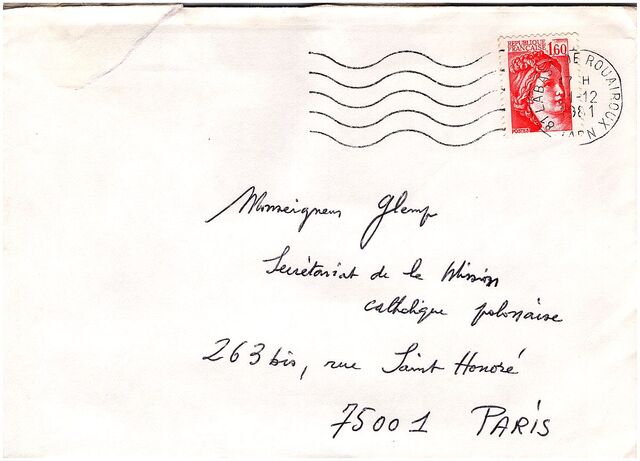 REPUBLIQUE FRANCAISE 1,60
POSTES
81 LABASTIDE ROUAIROUX TARN
17 H
-12
1981
Monseigneur Glemp
Secrétariat de la Mission
catholique polonaise
263 bis, rue Saint Honoré
75001 PARIS